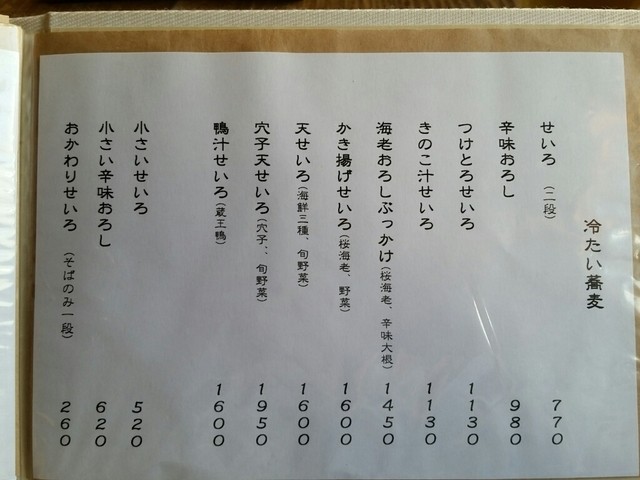 冷たい蕎麦
せいろ（二段） 770
辛味おろし 980
つけとろせいろ 1130
きのこ汁せいろ 1130
海老おろしぶっかけ（桜海老、辛味大根） 1450
かき揚げせいろ（桜海老、野菜） 1600
天せいろ（海鮮三種、旬野菜） 1600
穴子天せいろ（穴子、、旬野菜） 1950
鴨汁せいろ（蔵王鴨） 1600
小さいせいろ 520
小さい辛味おろし 620
おかわりせいろ（そばのみ一段） 260